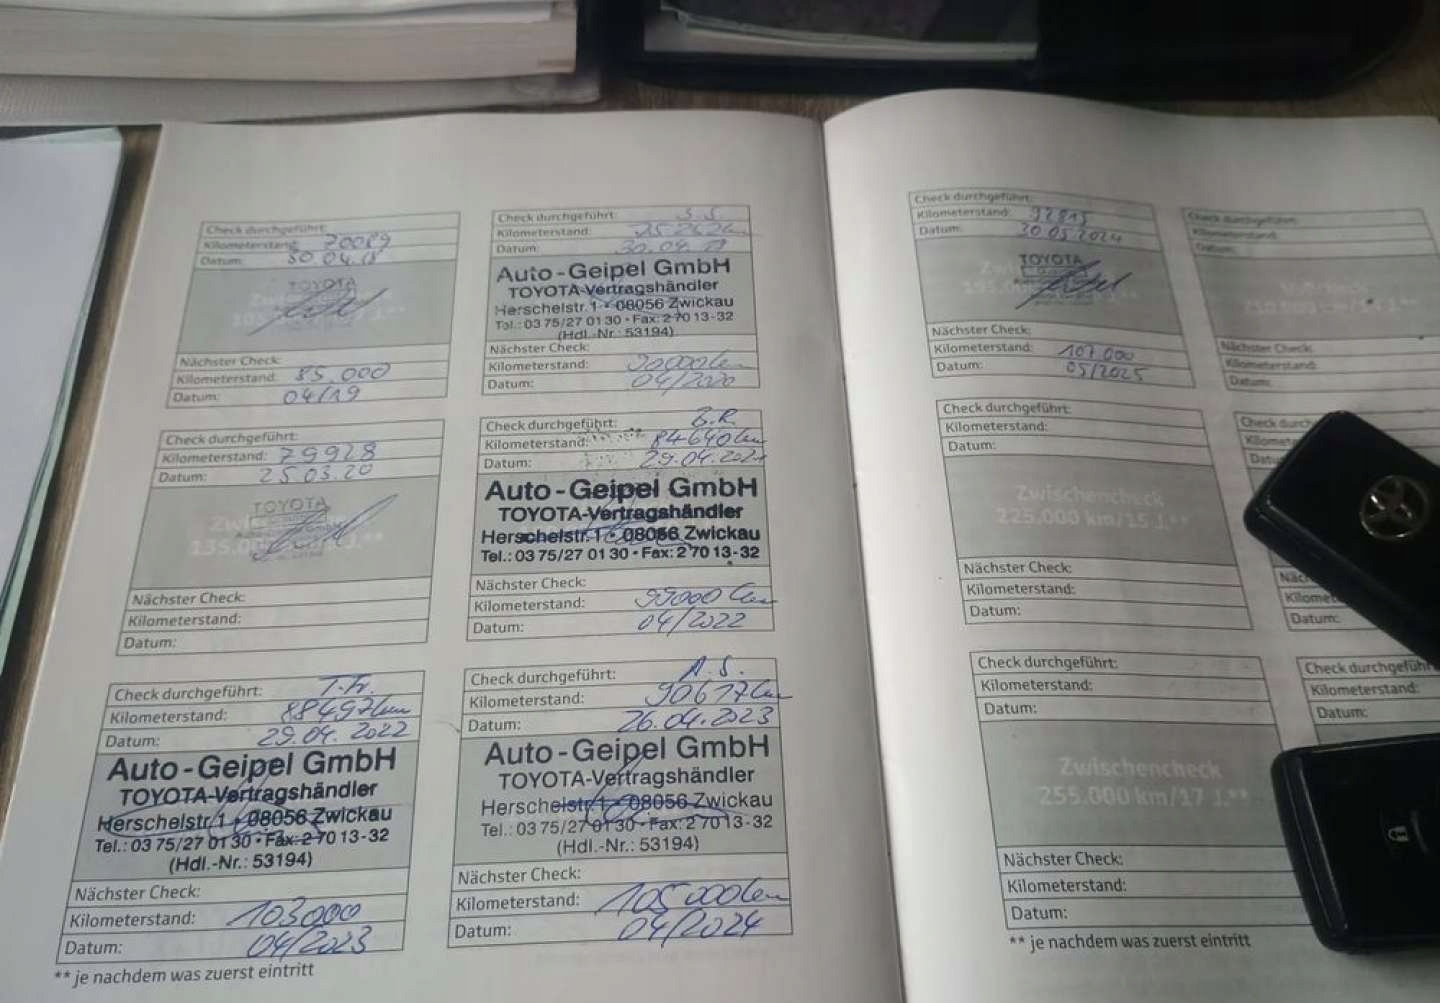 Check durchgeführt:
Kilometerstand: 70089
Datum: 30.04.18
TOYOTA
Nächster Check:
Kilometerstand: 85.000
Datum: 04/19
Check durchgeführt: S.S.
Kilometerstand:
Datum: 30.04.19
Auto-Geipel GmbH
TOYOTA-Vertragshändler
Herschelstr. 1 • 08056 Zwickau
Tel.: 03 75/27 01 30 • Fax: 2 70 13-32
(Hdl.-Nr.: 53194)
Nächster Check:
Kilometerstand: 90000km
Datum: 04/2020
Check durchgeführt:
Kilometerstand: 79928
Datum: 25.03.20
TOYOTA
Nächster Check:
Kilometerstand:
Datum:
Check durchgeführt: B.R.
Kilometerstand: 84640km
Datum: 29.04.2021
Auto-Geipel GmbH
TOYOTA-Vertragshändler
Herschelstr. 1 • 08056 Zwickau
Tel.: 03 75/27 01 30 • Fax: 2 70 13-32
Nächster Check:
Kilometerstand: 99000 km
Datum: 04/2022
Check durchgeführt: T.Fr.
Kilometerstand: 88497km
Datum: 29.04.2022
Auto-Geipel GmbH
TOYOTA-Vertragshändler
Herschelstr. 1 • 08056 Zwickau
Tel.: 03 75/27 01 30 • Fax: 2 70 13-32
(Hdl.-Nr.: 53194)
Nächster Check:
Kilometerstand: 103000
Datum: 04/2023
** je nachdem was zuerst eintritt
Check durchgeführt: A.S.
Kilometerstand: 90617km
Datum: 26.04.2023
Auto-Geipel GmbH
TOYOTA-Vertragshändler
Herschelstr. 1 • 08056 Zwickau
Tel.: 03 75/27 01 30 • Fax: 2 70 13-32
(Hdl.-Nr.: 53194)
Nächster Check:
Kilometerstand: 105000km
Datum: 04/2024
Check durchgeführt:
Kilometerstand: 92815
Datum: 30.05.2024
TOYOTA
Nächster Check:
Kilometerstand: 107.000
Datum: 05/2025
Check durchgeführt:
Kilometerstand:
Datum:
Nächster Check:
Kilometerstand:
Datum:
Check durchgeführt:
Kilometerstand:
Datum:
Zwischencheck
225.000 km/15 J.**
Nächster Check:
Kilometerstand:
Datum:
Check durchgeführt:
Kilometerstand:
Datum:
Zwischencheck
255.000 km/17 J.**
Nächster Check:
Kilometerstand:
Datum:
** je nachdem was zuerst eintritt
Check durchgeführ
Kilometerstand:
Datum: